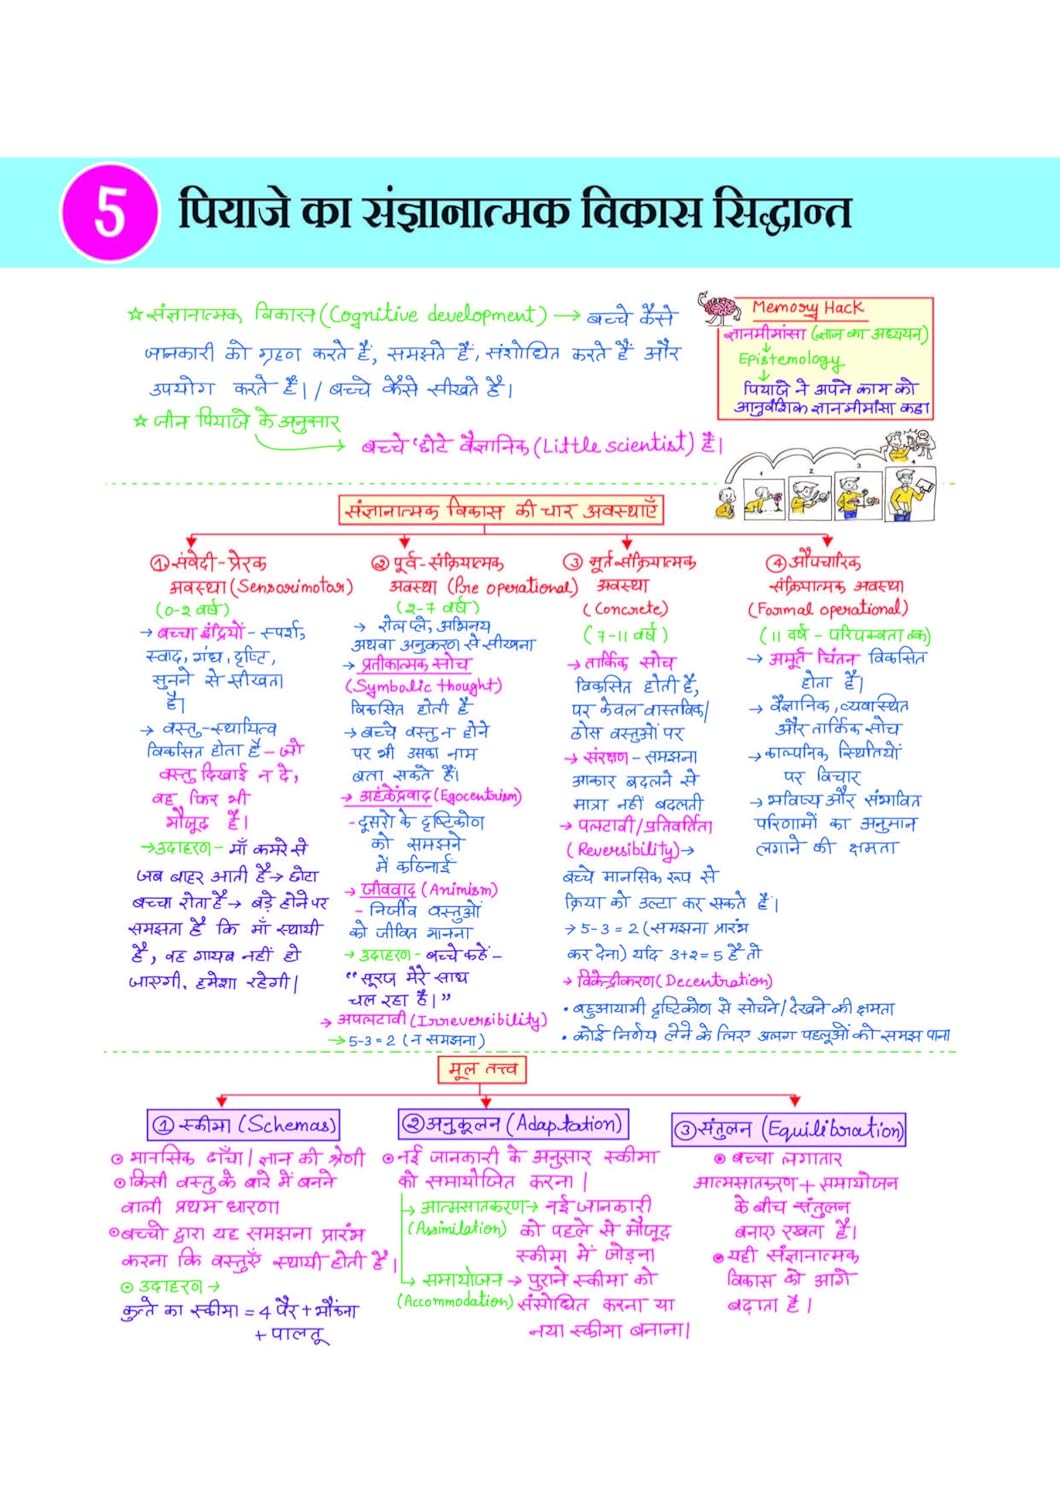 5 पियाजे का संज्ञानात्मक विकास सिद्धान्त
☆ संज्ञानात्मक विकास (Cognitive development) → बच्चे कैसे
जानकारी को ग्रहण करते हैं, समझते हैं, संशोधित करते हैं और
उपयोग करते हैं। / बच्चे कैसे सीखते हैं।
☆ जीन पियाजे के अनुसार
बच्चे 'छोटे वैज्ञानिक (Little scientist) हैं।
Memory Hack
ज्ञानमीमांसा (ज्ञान का अध्ययन)
Epistemology
पियाजे ने अपने काम को
आनुवंशिक ज्ञानमीमांसा कहा
1 2 3 4
संज्ञानात्मक विकास की चार अवस्थाएँ
① संवेदी-प्रेरक
अवस्था (Sensorimotor)
(0-2 वर्ष)
→ बच्चा इंद्रियों - स्पर्श,
स्वाद, गंध, दृष्टि,
सुनने से सीखता
है।
→ वस्तु-स्थायित्व
विकसित होता है - जो
वस्तु दिखाई न दे,
वह फिर भी
मौजूद है।
→ उदाहरण - माँ कमरे से
जब बाहर आती है → छोटा
बच्चा रोता है → बड़े होने पर
समझता है कि माँ स्थायी
है, वह गायब नहीं हो
जाएगी, हमेशा रहेगी।
② पूर्व-संक्रियात्मक
अवस्था (Pre operational)
(2-7 वर्ष)
→ रोल प्ले, अभिनय
अथवा अनुकरण से सीखना
→ प्रतीकात्मक सोच
(Symbolic thought)
विकसित होती है
→ बच्चे वस्तु न होने
पर भी उसका नाम
बता सकते हैं।
→ अहंकेंद्रवाद (Egocentrism)
- दूसरो के दृष्टिकोण
को समझने
में कठिनाई
→ जीववाद (Animism)
- निर्जीव वस्तुओं
को जीवित मानना
→ उदाहरण - बच्चे कहें -
"सूरज मेरे साथ
चल रहा है।"
→ अपलटावी (Irreversibility)
→ 5-3 = 2 (न समझना)
③ मूर्त संक्रियात्मक
अवस्था
(Concrete)
(7-11 वर्ष)
→ तार्किक सोच
विकसित होती है,
पर केवल वास्तविक/
ठोस वस्तुओं पर
→ संरक्षण - समझना
आकार बदलने से
मात्रा नहीं बदलती
→ पलटावी/प्रतिवर्तिता
(Reversibility) →
बच्चे मानसिक रूप से
क्रिया को उल्टा कर सकते हैं।
→ 5-3 = 2 (समझना प्रारंभ
कर देना) यदि 3+2=5 है तो
→ विकेन्द्रीकरण (Decentration)
• बहुआयामी दृष्टिकोण से सोचने/देखने की क्षमता
• कोई निर्णय लेने के लिए अलग पहलूओं को समझ पाना
④ औपचारिक
संक्रियात्मक अवस्था
(Formal operational)
(11 वर्ष - परिपक्वता तक)
→ अमूर्त चिंतन विकसित
होता है।
→ वैज्ञानिक, व्यवस्थित
और तार्किक सोच
→ काल्पनिक स्थितियों
पर विचार
→ भविष्य और संभावित
परिणामों का अनुमान
लगाने की क्षमता
मूल तत्त्व
① स्कीमा (Schemas)
⊙ मानसिक ढाँचा। ज्ञान की श्रेणी
⊙ किसी वस्तु के बारे में बनने
वाली प्रथम धारणा
⊙ बच्चो द्वारा यह समझना प्रारंभ
करना कि वस्तुएँ स्थायी होती हैं।
⊙ उदाहरण →
कुत्ते का स्कीमा = 4 पैर + भौंकना
+ पालतू
② अनुकूलन (Adaptation)
⊙ नई जानकारी के अनुसार स्कीमा
को समायोजित करना।
→ आत्मसातकरण → नई जानकारी
(Assimilation) को पहले से मौजूद
स्कीमा में जोड़ना
→ समायोजन → पुराने स्कीमा को
(Accommodation) संसोधित करना या
नया स्कीमा बनाना।
③ संतुलन (Equilibration)
⊙ बच्चा लगातार
आत्मसातकरण + समायोजन
के बीच संतुलन
बनाए रखता है।
⊙ यही संज्ञानात्मक
विकास को आगे
बढ़ाता है।